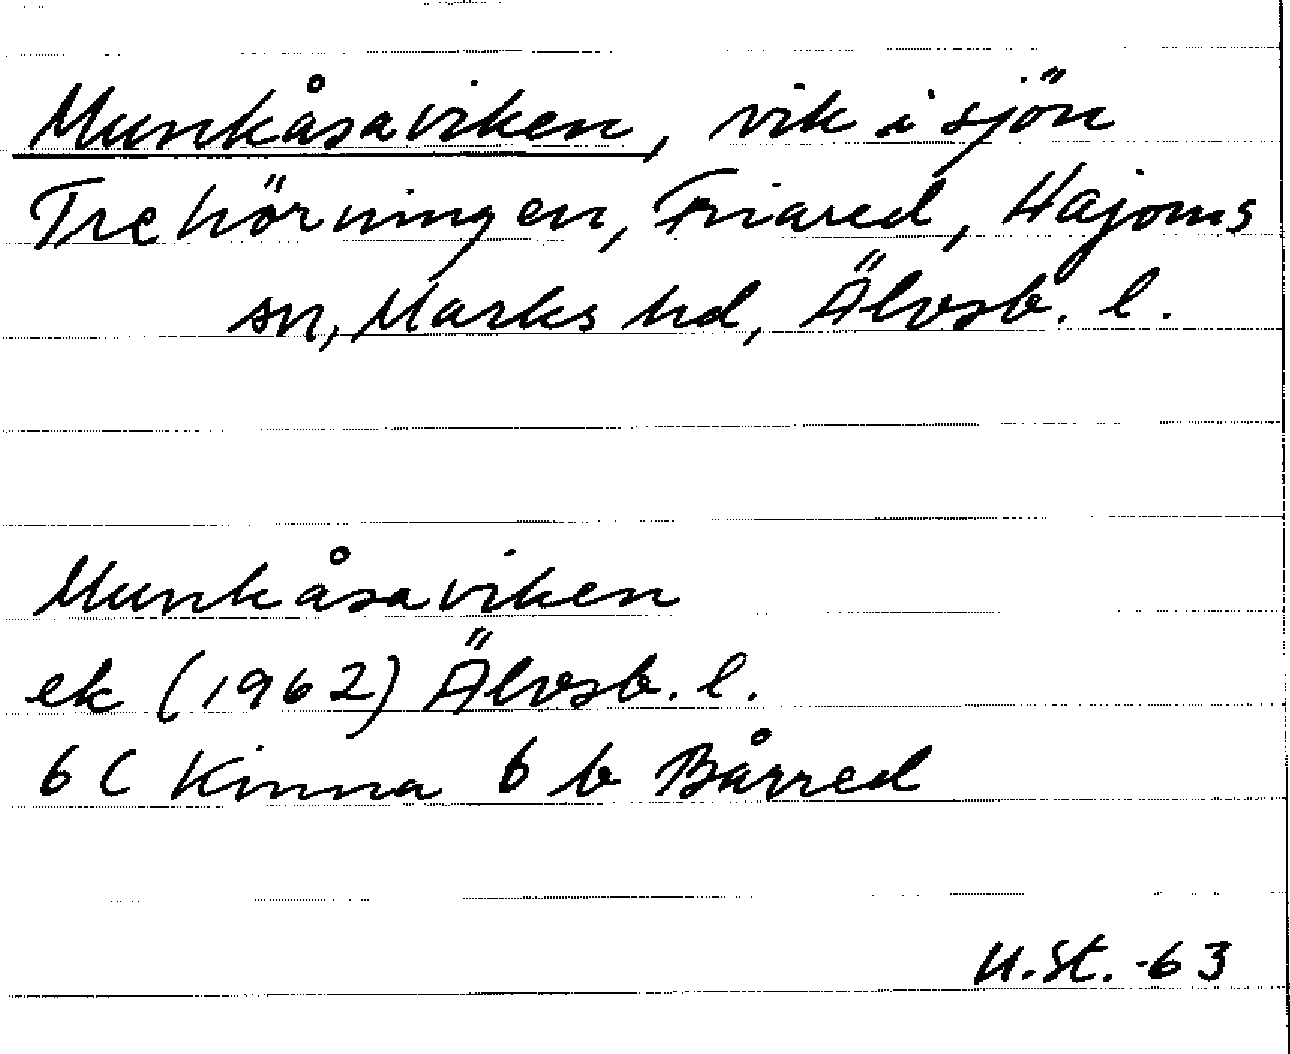 Munkåsaviken, vik i sjön
Trehörningen, Friared, Hajoms
sn, Marks hd, Älvsb. l.
Munkåsaviken
ek (1962) Älvsb. l.
6 C Kinna 6 b Bårred
U.St. -63